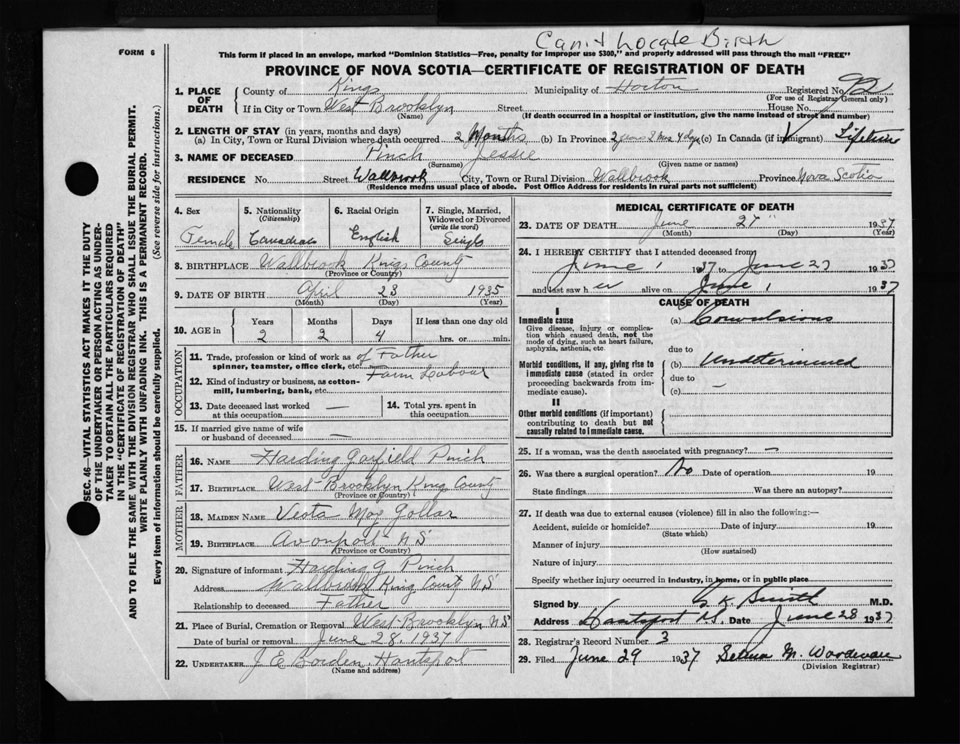 Can't Locate Birth
FORM 6
This form if placed in an envelope, marked "Dominion Statistics—Free, penalty for improper use $300," and properly addressed will pass through the mail "FREE"
PROVINCE OF NOVA SCOTIA—CERTIFICATE OF REGISTRATION OF DEATH
SEC. 46—VITAL STATISTICS ACT MAKES IT THE DUTY
OF THE UNDERTAKER OR PERSON ACTING AS UNDER-
TAKER TO OBTAIN ALL THE PARTICULARS REQUIRED
IN THE "CERTIFICATE OF REGISTRATION OF DEATH"
AND TO FILE THE SAME WITH THE DIVISION REGISTRAR WHO SHALL ISSUE THE BURIAL PERMIT.
WRITE PLAINLY WITH UNFADING INK. THIS IS A PERMANENT RECORD.
Every item of information should be carefully supplied. (See reverse side for instructions.)
1. PLACE OF DEATH
County of Kings Municipality of Horton Registered No. 92
(For use of Registrar General only)
If in City or Town West Brooklyn Street House No.
(Name) (If death occurred in a hospital or institution, give the name instead of street and number)
2. LENGTH OF STAY (in years, months and days)
(a) In City, Town or Rural Division where death occurred 2 Months (b) In Province 2 years 2 mos 4 days (c) In Canada (if immigrant) Lifetime
3. NAME OF DECEASED Pinch Jessie
(Surname) (Given name or names)
RESIDENCE No. Street Wallbrook City, Town or Rural Division Wallbrook Province Nova Scotia
(Residence means usual place of abode. Post Office Address for residents in rural parts not sufficient)
4. Sex
Female
5. Nationality
(Citizenship)
Canadian
6. Racial Origin
English
7. Single, Married,
Widowed or Divorced
(write the word)
Single
8. BIRTHPLACE Wallbrook Kings County
(Province or Country)
9. DATE OF BIRTH April 23 1935
(Month) (Day) (Year)
10. AGE in
Years Months Days If less than one day old
2 2 4 hrs. or min.
OCCUPATION
11. Trade, profession or kind of work as of Father
spinner, teamster, office clerk, etc. Farm Labour
12. Kind of industry or business, as cotton-
mill, lumbering, bank, etc.
13. Date deceased last worked
at this occupation —
14. Total yrs. spent in
this occupation
15. If married give name of wife
or husband of deceased —
FATHER
16. NAME Harding Garfield Pinch
17. BIRTHPLACE West Brooklyn King County
(Province or Country)
MOTHER
18. MAIDEN NAME Veota May Gollar
19. BIRTHPLACE Avonport N.S.
(Province or Country)
20. Signature of informant Harding G Pinch
Address Wallbrook King County N.S.
Relationship to deceased Father
21. Place of Burial, Cremation or Removal West Brooklyn N.S.
Date of burial or removal June 28, 1937
22. UNDERTAKER J E Borden, Hantsport
(Name and address)
MEDICAL CERTIFICATE OF DEATH
23. DATE OF DEATH June 27 1937
(Month) (Day) (Year)
24. I HEREBY CERTIFY that I attended deceased from
June 1 1937 to June 27 1937
and last saw her alive on June 1 1937
CAUSE OF DEATH
I
Immediate cause
Give disease, injury or complica-
tion which caused death, not the
mode of dying, such as heart failure,
asphyxia, asthenia, etc.
(a) Convulsions
due to
Morbid conditions, if any, giving rise to
immediate cause (stated in order
proceeding backwards from im-
mediate cause).
(b) Undetermined
due to
(c) —
II
Other morbid conditions (if important)
contributing to death but not
causally related to immediate cause.
25. If a woman, was the death associated with pregnancy? —
26. Was there a surgical operation? No Date of operation 19
State findings Was there an autopsy?
27. If death was due to external causes (violence) fill in also the following:—
Accident, suicide or homicide? Date of injury 19
(State which)
Manner of injury
(How sustained)
Nature of injury
Specify whether injury occurred in industry, in home, or in public place
Signed by G K Smith M.D.
Address Hantsport N.S. Date June 28 1937
28. Registrar's Record Number 3
29. Filed June 29 1937 Selma M. Woodman
(Division Registrar)